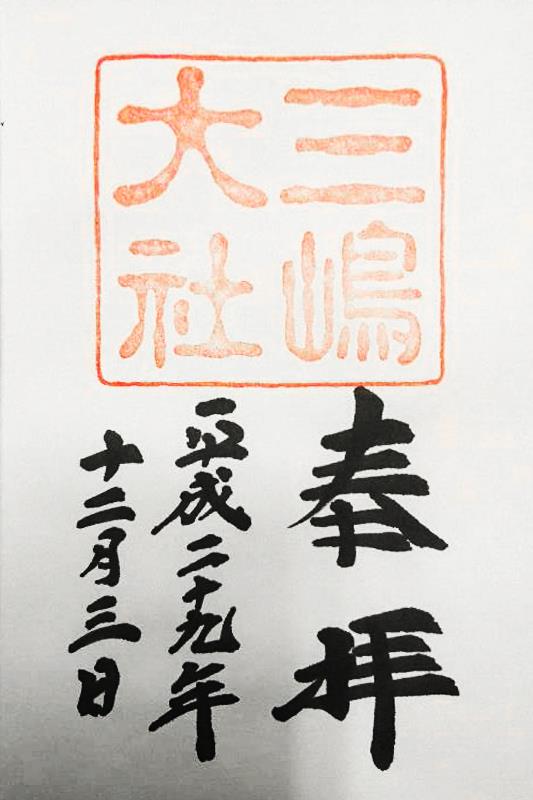 三嶋
大社
奉拝
平成二十九年
十二月三日